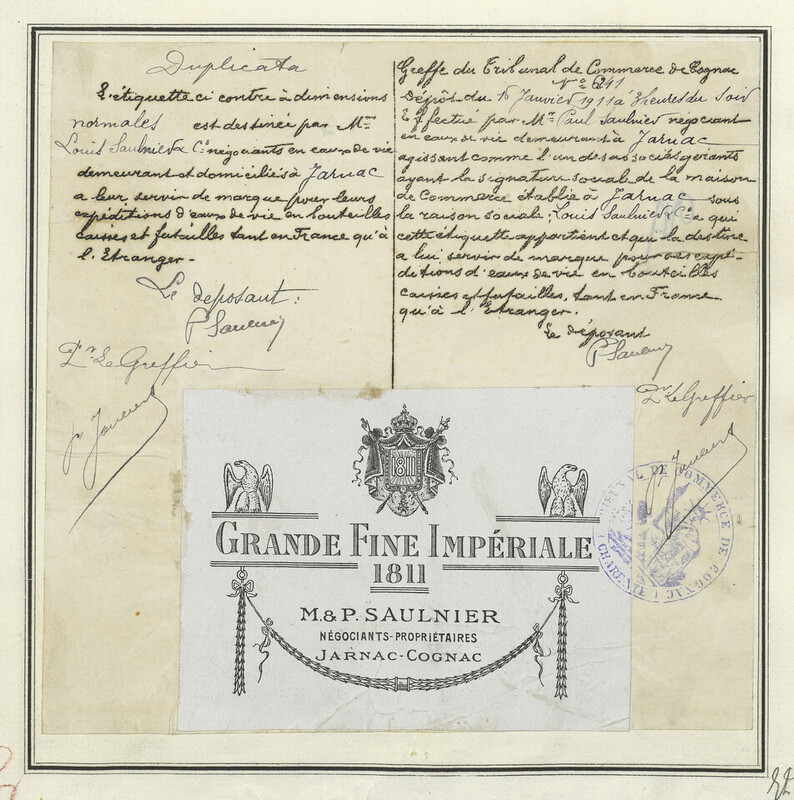 Duplicata
L'étiquette ci contre à dimensions
normales est destinée par Mrs
Louis Saulnier & Co négociants en eaux de vie
demeurant et domiciliés à Jarnac
a leur servir de marque pour leurs
expéditions d'eaux de vie en bouteilles
caisses et futailles tant en France qu'à
l'Etranger -
Le deposant :
P Saulnier
Pr Le Greffier
Greffe du Tribunal de Commerce de Cognac
No 641
Dépôt du 16 Janvier 1911 à 3 heures du Soir
Effectué par Mr Paul Saulnier négociant
en eaux de vie demeurant à Jarnac
agissant comme l'un des associés gérants
ayant la signature sociale de la maison
de Commerce établie à Jarnac sous
la raison sociale : Louis Saulnier & Co a qui
cette étiquette appartient et qui la destine
a lui servir de marque pour ses expé-
ditions d'eaux de vie en bouteilles
caisses et futailles, tant en France
qu'à l'Etranger.
Le déposant
P Saulnier
Pr Le Greffier
1811
GRANDE FINE IMPÉRIALE
1811
M.& P. SAULNIER
NÉGOCIANTS-PROPRIÉTAIRES
JARNAC-COGNAC
TRIBUNAL DE COMMERCE DE COGNAC
(CHARENTE)